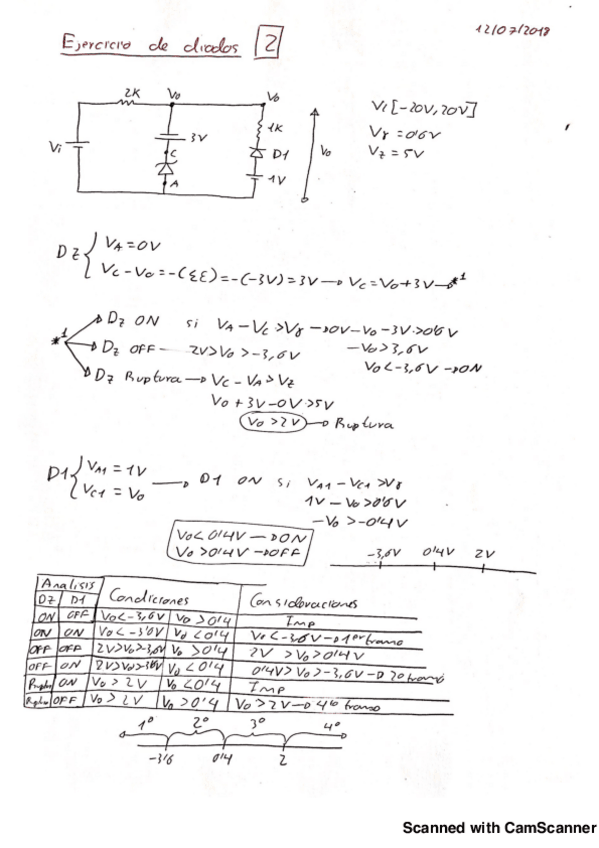 12/07/2018
Ejercicio de diodos 2
2K Vo Vo
Vi 3V 1K D1 1V Vo
C
A
Vi [-20V, 20V]
Vγ = 0'6V
Vz = 5V
Dz { VA = 0V
Vc - Vo = -(ΣE) = -(-3V) = 3V → Vc = Vo + 3V → *1
*1 Dz ON si VA - Vc > Vγ → 0V - Vo - 3V > 0'6V
Dz OFF - 2V > Vo > -3,6V -Vo > 3,6V
Vo < -3,6V → ON
Dz Ruptura → Vc - VA > Vz
Vo + 3V - 0V > 5V
Vo > 2V → Ruptura
D1 { VA1 = 1V
VC1 = Vo
→ D1 ON si VA1 - VC1 > Vγ
1V - Vo > 0'6V
-Vo > -0'4V
Vo < 0'4V → ON
Vo > 0'4V → OFF
-3,6V 0'4V 2V
Analisis Condiciones Consideraciones
DZ D1
ON OFF Vo < -3,6V Vo > 0'4 Imp
ON ON Vo < -3'6V Vo < 0'4 Vo < -3,6V → 1er tramo
OFF OFF 2V > Vo > -3,6V Vo > 0'4 2V > Vo > 0'4V
OFF ON 2V > Vo > -3,6V Vo < 0'4 0'4V > Vo > -3,6V → 2o tramo
Ruptu ON Vo > 2V Vo < 0'4 Imp
Ruptu OFF Vo > 2V Vo > 0'4 Vo > 2V → 4to tramo
1º 2º 3º 4º
-3'6 0'4 2
Scanned with CamScanner